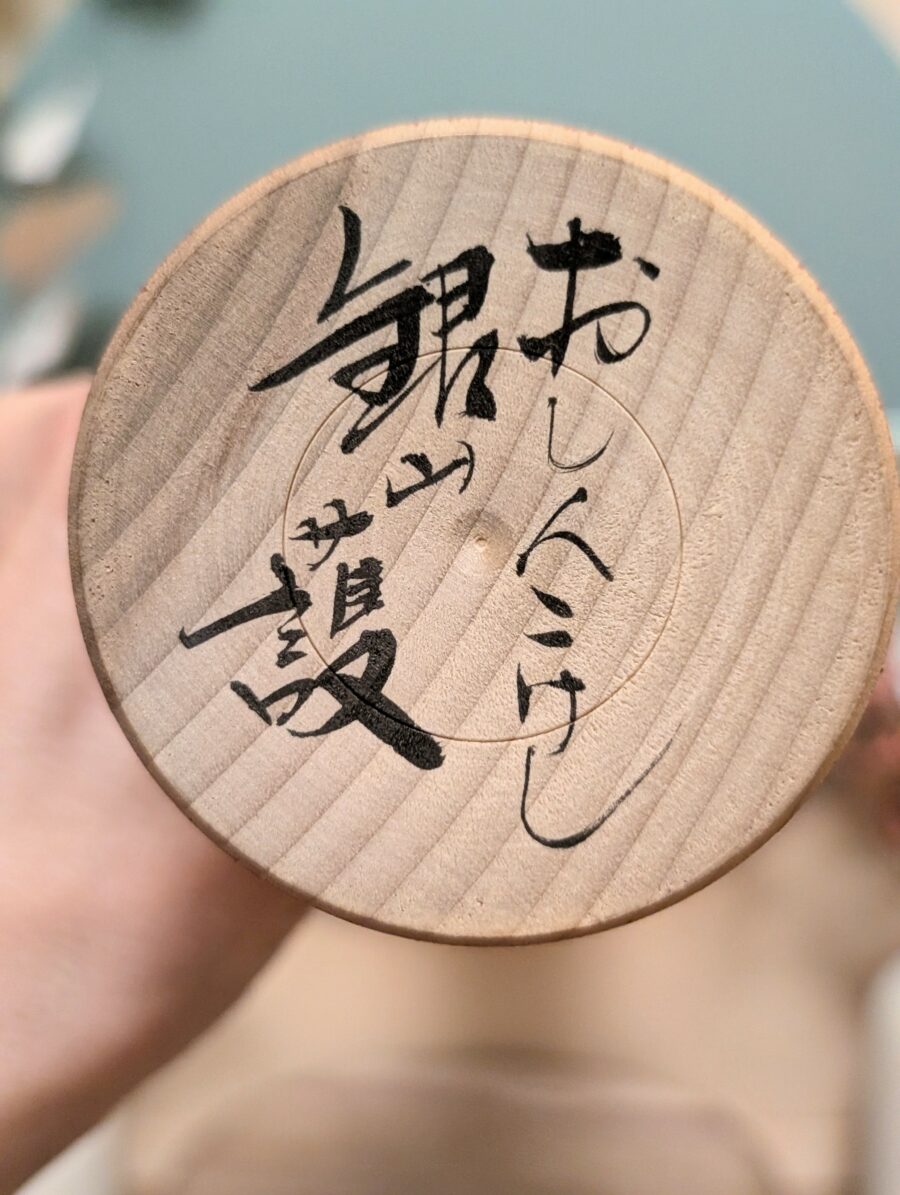 おしんこけし
銀山 護